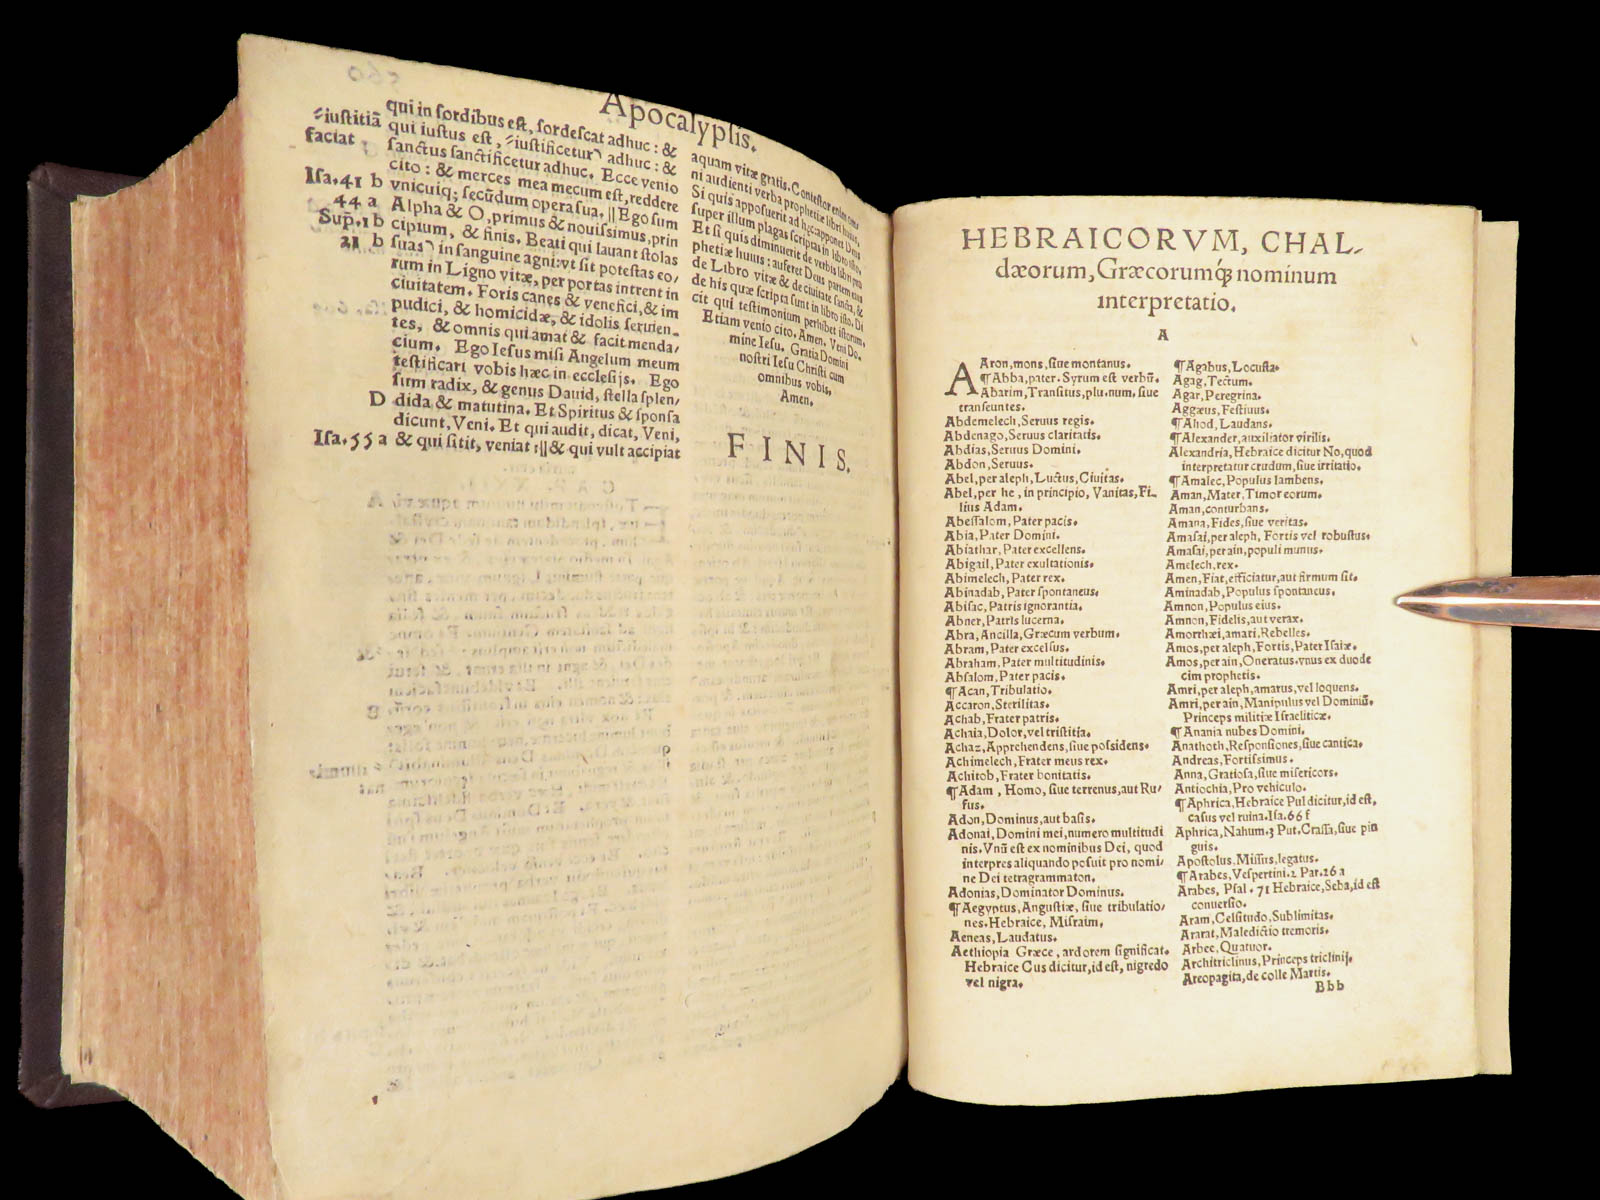 Apocalypsis.
⸗iustitiā
faciat
Isa.41 b
44 a
Sup̄.1 b
21 b
D
Isa.55 a
qui in sordibus est, sordescat adhuc: &
qui iustus est, ⸗iustificetur⸣ adhuc: &
sanctus sanctificetur adhuc. Ecce venio
cito: & merces mea mecum est, reddere
vnicuiq; secūdum opera sua. || Ego sum
Alpha & O, primus & nouissimus, prin
cipium, & finis. Beati qui lauant stolas
suas⸣ in sanguine agni: vt sit potestas eo/
rum in Ligno vitæ, per portas intrent in
ciuitatem. Foris canes & venefici, & im
pudici, & homicidæ, & idolis seruien-
tes, & omnis qui amat & facit menda/
cium. Ego Iesus misi Angelum meum
testificari vobis hæc in ecclesijs. Ego
sum radix, & genus Dauid, stella splen/
dida & matutina. Et Spiritus & sponsa
dicunt, Veni. Et qui audit, dicat, Veni,
& qui sitit, veniat: || & qui vult accipiat
aquam vitæ gratis. Contestor enim omni
ni audienti verba prophetiæ libri huius,
Si quis apposuerit ad hęc: apponet Deus
super illum plagas scriptas in libro isto.
Et si quis diminuerit de verbis libri pro
phetiæ huius: auferet Deus partem eius
de Libro vitæ & de ciuitate sancta, &
de his quæ scripta sunt in libro isto. Di
cit qui testimonium perhibet istorum.
Etiam venio cito. Amen. Veni Do.
mine Iesu. Gratia Domini
nostri Iesu Christi cum
omnibus vobis.
Amen.
FINIS.
HEBRAICORVM, CHAL-
dæorum, Græcorumq́; nominum
interpretatio.
A
AAron, mons, siue montanus.
¶Abba, pater. Syrum est verbū.
Abarim, Transitus, plu. num, siue
transeuntes.
Abdemelech, Seruus regis.
Abdenago, Seruus claritatis.
Abdias, Seruus Domini.
Abdon, Seruus.
Abel, per aleph, Luctus, Ciuitas.
Abel, per he, in principio, Vanitas, Fi-
lius Adam.
Abessalom, Pater pacis.
Abia, Pater Domini.
Abiathar, Pater excellens.
Abigail, Pater exultationis.
Abimelech, Pater rex.
Abinadab, Pater spontaneus.
Abisac, Patris ignorantia.
Abner, Patris lucerna.
Abra, Ancilla, Græcum verbum.
Abram, Pater excelsus.
Abraham, Pater multitudinis.
Absalom, Pater pacis.
¶Acan, Tribulatio.
Accaron, Sterilitas.
Achab, Frater patris.
Achaia, Dolor, vel tristitia.
Achaz, Apprehendens, siue possidens.
Achimelech, Frater meus rex.
Achitob, Frater bonitatis.
¶Adam, Homo, siue terrenus, aut Ru/
fus.
Adon, Dominus, aut basis.
Adonai, Domini mei, numero multitudi
nis. Vnū est ex nominibus Dei, quod
interpres aliquando posuit pro nomi/
ne Dei tetragrammaton.
Adonias, Dominator Dominus.
¶Aegyptus, Angustiæ, siue tribulatio/
nes. Hebraice, Misraim.
Aeneas, Laudatus.
Aethiopia Græce, ardorem significat.
Hebraice Cus dicitur, id est, nigredo
vel nigra.
¶Agabus, Locusta.
Agag, Tectum.
Agar, Peregrina.
Aggæus, Festiuus.
¶Ahod, Laudans.
¶Alexander, auxiliator virilis.
Alexandria, Hebraice dicitur No, quod
interpretatur crudum, siue irritatio.
¶Amalec, Populus lambens.
Aman, Mater, Timor eorum.
Aman, conturbans.
Amana, Fides, siue veritas.
Amasai, per aleph, Fortis vel robustus.
Amasai, per ain, populi munus.
Amelech, rex.
Amen, Fiat, efficiatur, aut firmum sit.
Aminadab, Populus spontaneus.
Amnon, Populus eius.
Amnon, Fidelis, aut verax.
Amorrhæi, amari, Rebelles.
Amos, per aleph, Fortis, Pater Isaiæ.
Amos, per ain, Oneratus. vnus ex duode
cim prophetis.
Amri, per aleph, amarus, vel loquens.
Amri, per ain, Manipulus vel Dominū.
Princeps militiæ Israeliticæ.
¶Anania nubes Domini.
Anathoth, Responsiones, siue cantica.
Andreas, Fortissimus.
Anna, Gratiosa, siue misericors.
Antiochia, Pro vehiculo.
¶Aphrica, Hebraice Pul dicitur, id est,
casus vel ruina. Isa.66 f
Aphrica, Nahum.3 Put. Crassa, siue pin
guis.
Apostolus, Missus, legatus.
¶Arabes, Vespertini. 2 Par.26 a
Arabes, Psal. 71 Hebraice, Seba, id est
conuersio.
Aram, Celsitudo, Sublimitas.
Ararat, Maledictio tremoris.
Arbee, Quatuor.
Architriclinus, Princeps triclinij.
Areopagita, de colle Martis.
Bbb